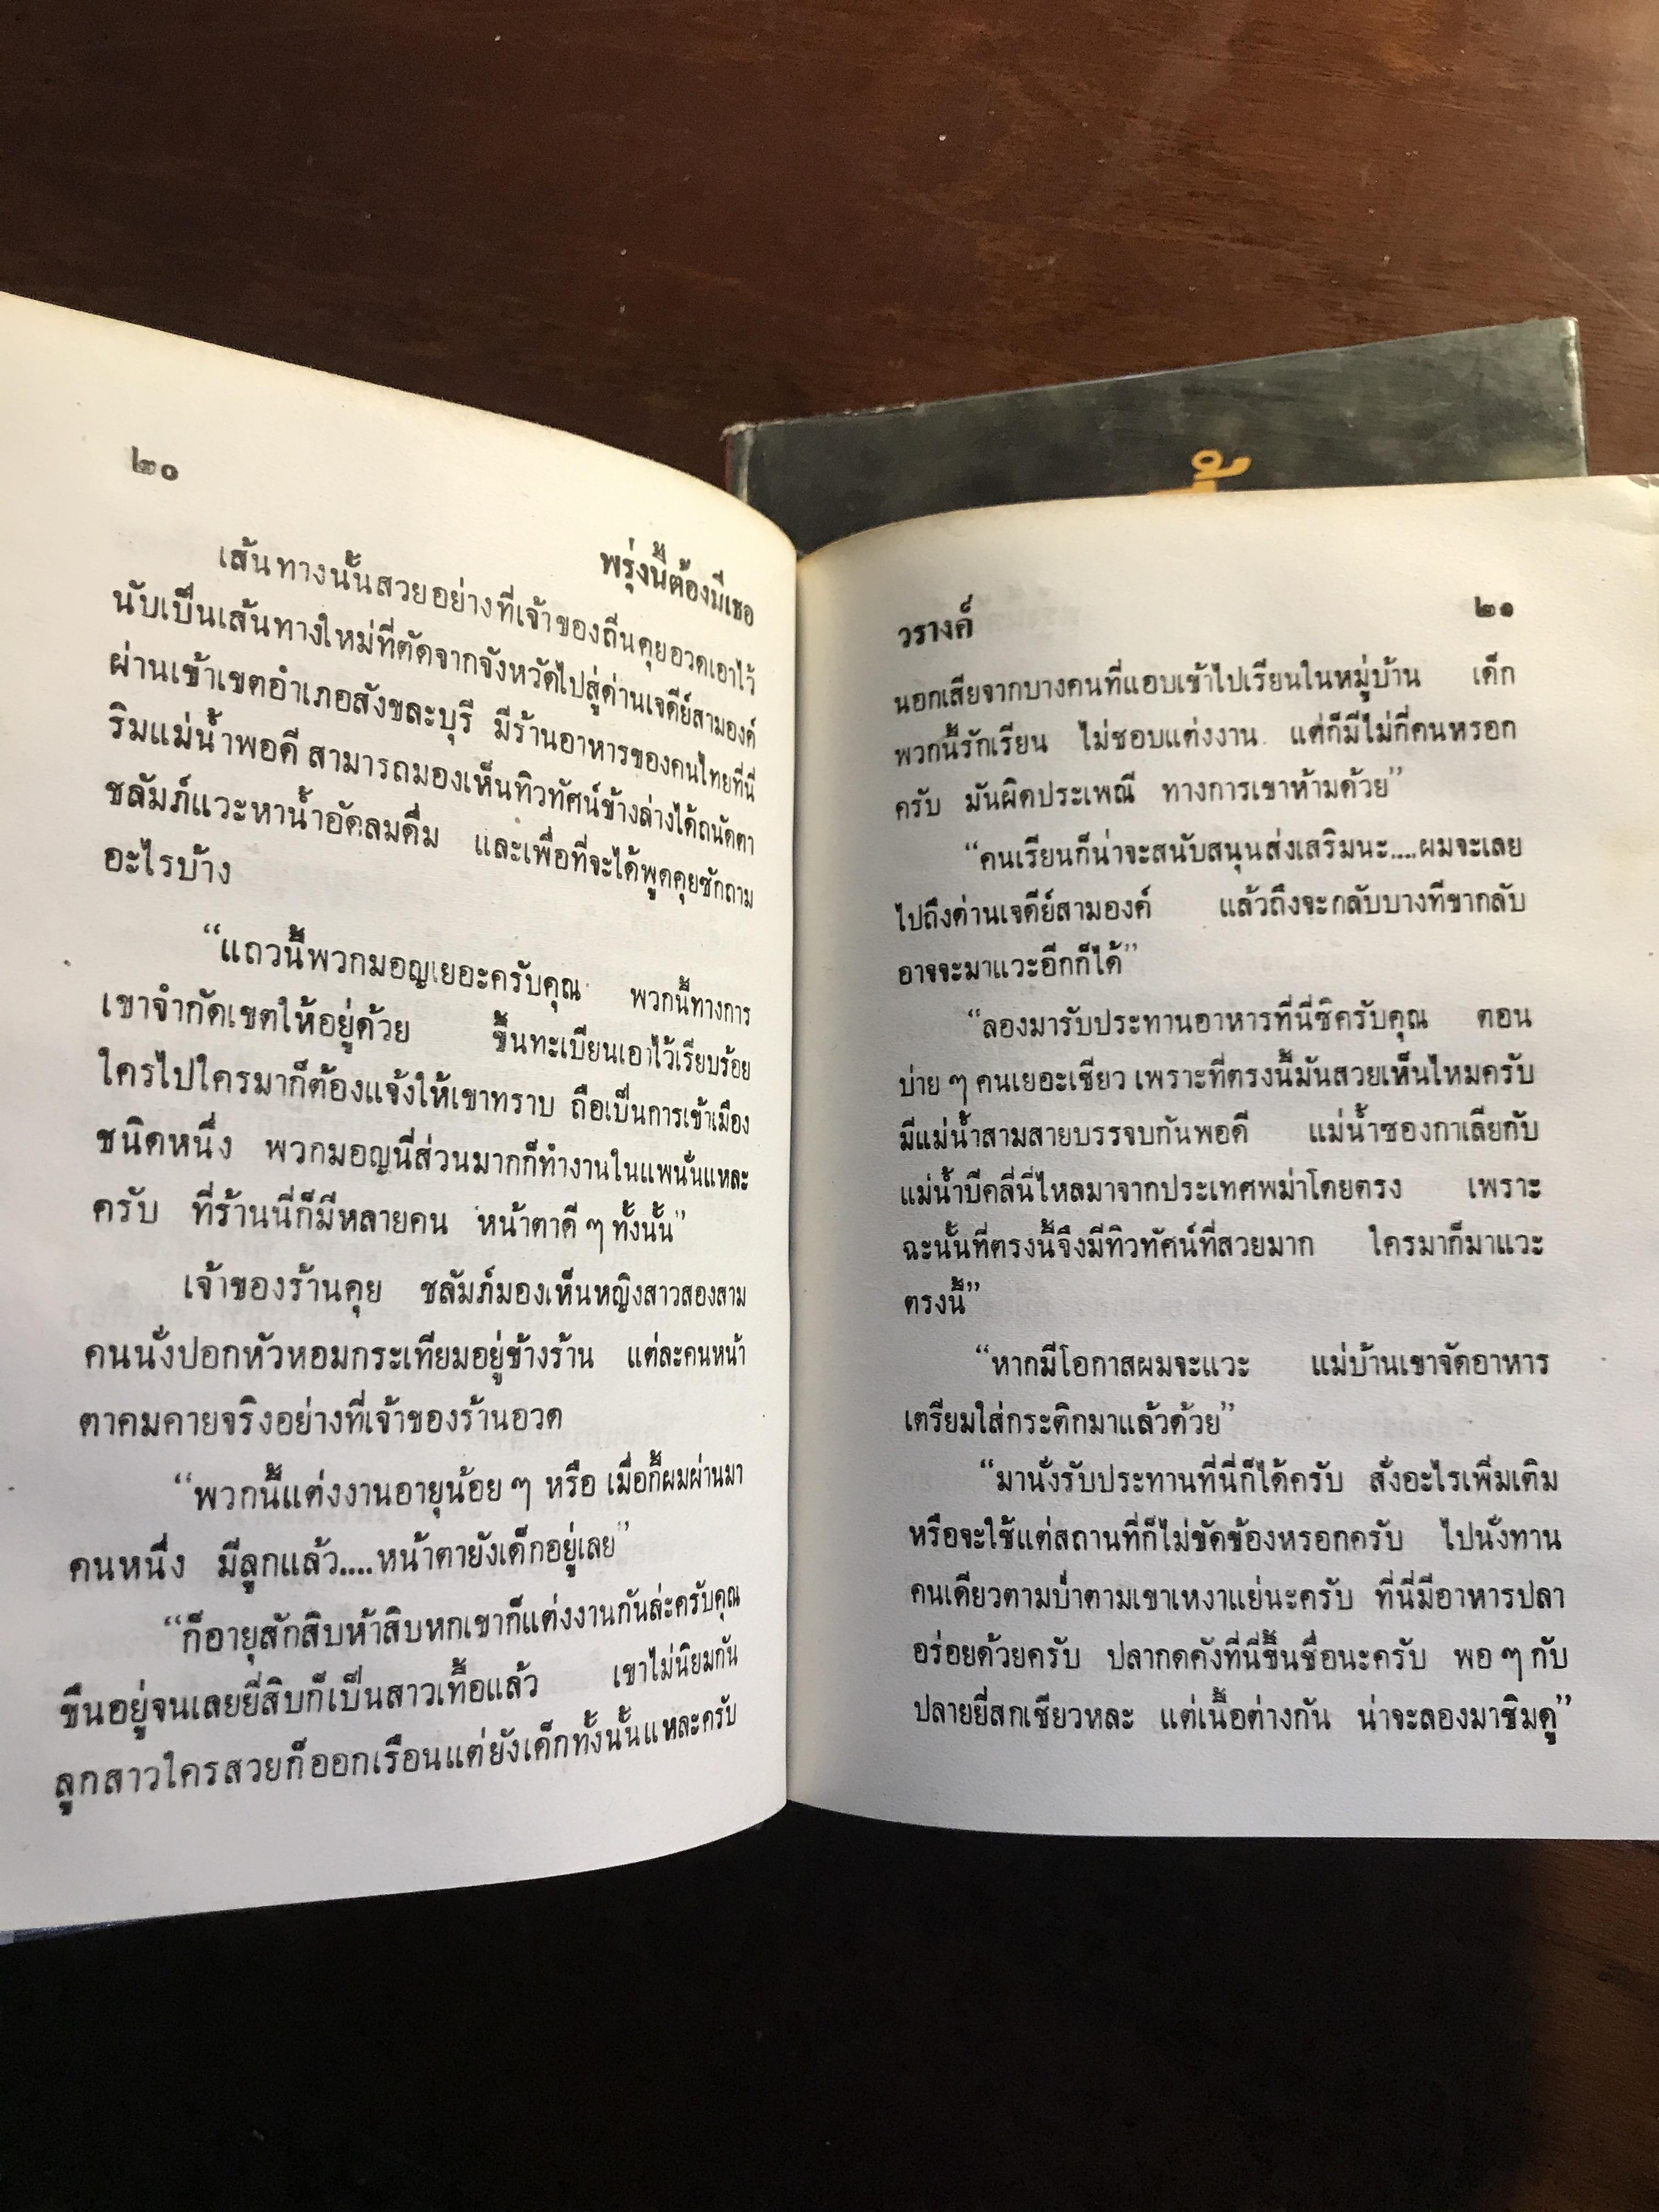 ๒๐
พรุ่งนี้ต้องมีเธอ
เส้นทางนั้นสวยอย่างที่เจ้าของถิ่นคุยอวดเอาไว้
นับเป็นเส้นทางใหม่ที่ตัดจากจังหวัดไปสู่ด่านเจดีย์สามองค์
ผ่านเข้าเขตอำเภอสังขละบุรี มีร้านอาหารของคนไทยที่นี่
ริมแม่น้ำพอดี สามารถมองเห็นทิวทัศน์ข้างล่างได้ถนัดตา
ชลัมภ์แวะหาน้ำอัดลมดื่ม และเพื่อที่จะได้พูดคุยซักถาม
อะไรบ้าง
“แถวนี้พวกมอญเยอะครับคุณ พวกนี้ทางการ
เขาจำกัดเขตให้อยู่ด้วย ขึ้นทะเบียนเอาไว้เรียบร้อย
ใครไปใครมาก็ต้องแจ้งให้เขาทราบ ถือเป็นการเข้าเมือง
ชนิดหนึ่ง พวกมอญนี่ส่วนมากก็ทำงานในแพนั่นแหละ
ครับ ที่ร้านนี่ก็มีหลายคน หน้าตาดี ๆ ทั้งนั้น”
เจ้าของร้านคุย ชลัมภ์มองเห็นหญิงสาวสองสาม
คนนั่งปอกหัวหอมกระเทียมอยู่ข้างร้าน แต่ละคนหน้า
ตาคมคายจริงอย่างที่เจ้าของร้านอวด
“พวกนี้แต่งงานอายุน้อย ๆ หรือ เมื่อกี้ผมผ่านมา
คนหนึ่ง มีลูกแล้ว....หน้าตายังเด็กอยู่เลย”
“ก็อายุสักสิบห้าสิบหกเขาก็แต่งงานกันล่ะครับคุณ
ขืนอยู่จนเลยยี่สิบก็เป็นสาวเทื้อแล้ว เขาไม่นิยมกัน
ลูกสาวใครสวยก็ออกเรือนแต่ยังเด็กทั้งนั้นแหละครับ
วรางค์
๒๑
นอกเสียจากบางคนที่แอบเข้าไปเรียนในหมู่บ้าน เด็ก
พวกนี้รักเรียน ไม่ชอบแต่งงาน แต่ก็มีไม่กี่คนหรอก
ครับ มันผิดประเพณี ทางการเขาห้ามด้วย”
“คนเรียนก็น่าจะสนับสนุนส่งเสริมนะ....ผมจะเลย
ไปถึงด่านเจดีย์สามองค์ แล้วถึงจะกลับบางทีขากลับ
อาจจะมาแวะอีกก็ได้”
“ลองมารับประทานอาหารที่นี่ซิครับคุณ ตอน
บ่าย ๆ คนเยอะเชียว เพราะที่ตรงนี้มันสวยเห็นไหมครับ
มีแม่น้ำสามสายบรรจบกันพอดี แม่น้ำซองกาเลียกับ
แม่น้ำบีคลี่นี่ไหลมาจากประเทศพม่าโดยตรง เพราะ
ฉะนั้นที่ตรงนี้จึงมีทิวทัศน์ที่สวยมาก ใครมาก็มาแวะ
ตรงนี้”
“หากมีโอกาสผมจะแวะ แม่บ้านเขาจัดอาหาร
เตรียมใส่กระติกมาแล้วด้วย”
“มานั่งรับประทานที่นี่ก็ได้ครับ สั่งอะไรเพิ่มเติม
หรือจะใช้แต่สถานที่ก็ไม่ขัดข้องหรอกครับ ไปนั่งทาน
คนเดียวตามป่าตามเขาเหงาแย่นะครับ ที่นี่มีอาหารปลา
อร่อยด้วยครับ ปลากดคังที่นี่ขึ้นชื่อนะครับ พอ ๆ กับ
ปลายยี่สกเชียวหละ แต่เนื้อต่างกัน น่าจะลองมาชิมดู”